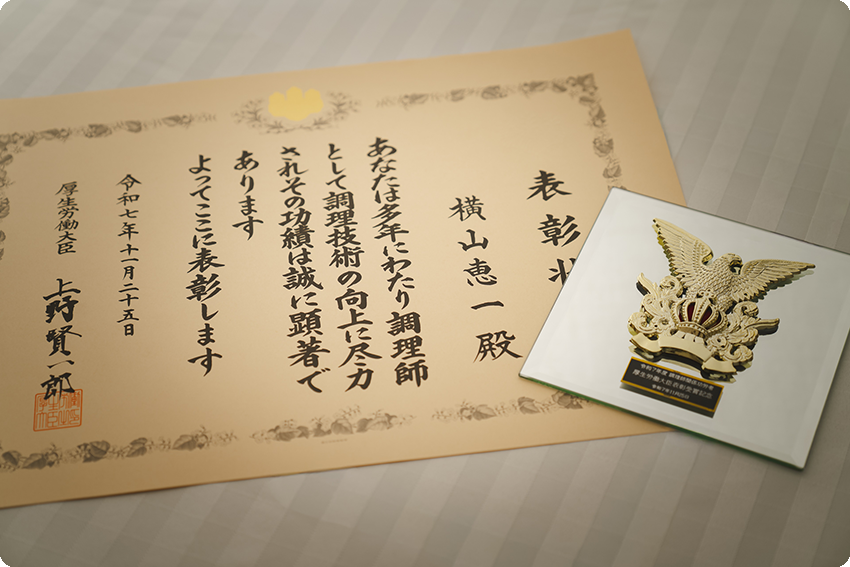 表彰状
横山恵一殿
あなたは多年にわたり調理師
として調理技術の向上に尽力
されその功績は誠に顕著で
あります
よってここに表彰します
令和七年十一月二十五日
厚生労働大臣 上野賢一郎
令和7年度 調理師関係功労者
厚生労働大臣表彰受賞記念
令和7年11月25日